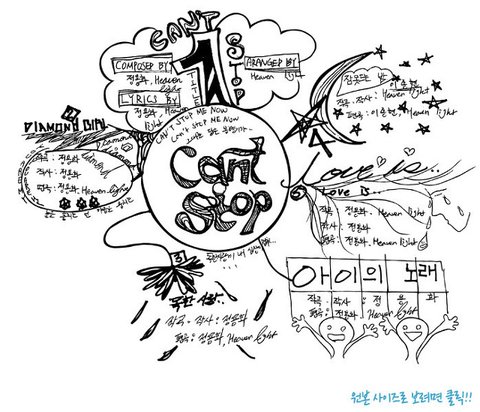 CAN'T STOP
1
TITLE
COMPOSED BY
정용화, Heaven light
LYRICS BY
정용화, Heaven light
ARRANGED BY
Heaven light
CAN'T STOP ME NOW
Can't STOP ME NOW
Can't Stop
2
DIAMOND GIRL
Diamond
작곡 : 정용화
작사 : 정용화
편곡 : 정용화, Heaven light
3
독한 사랑..
작곡 · 작사 : 정용화
편곡 : 정용화, Heaven light
4
잠 못드는 밤
작곡 · 작사 :
Heaven light
편곡 :
Heaven light
5
Love is...
LOVE IS..
작곡 : 정용화, Heaven light
작사 : 정용화
편곡 : 정용화, Heaven light
아이의 노래
작곡 · 작사 : 정용화
편곡 : 정용화, Heaven light
원본 사이즈로 보려면 클릭!!